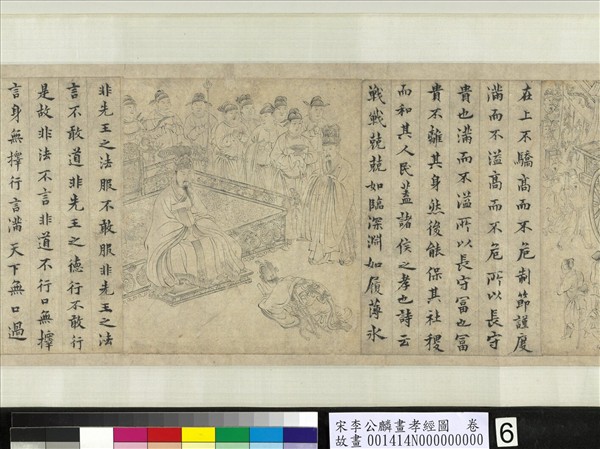 在上不驕高而不危制節謹度
滿而不溢高而不危所以長守
貴也滿而不溢所以長守富也富
貴不離其身然後能保其社稷
而和其人民蓋諸侯之孝也詩云
戰戰兢兢如臨深淵如履薄氷
非先王之法服不敢服非先王之法
言不敢道非先王之德行不敢行
是故非法不言非道不行口無擇
言身無擇行言滿天下無口過
宋李公麟畫孝經圖 卷
故畫 001414N000000000
6